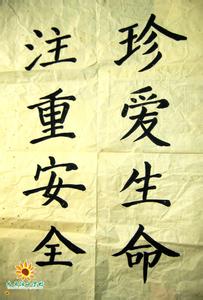 珍爱生命
注重安全